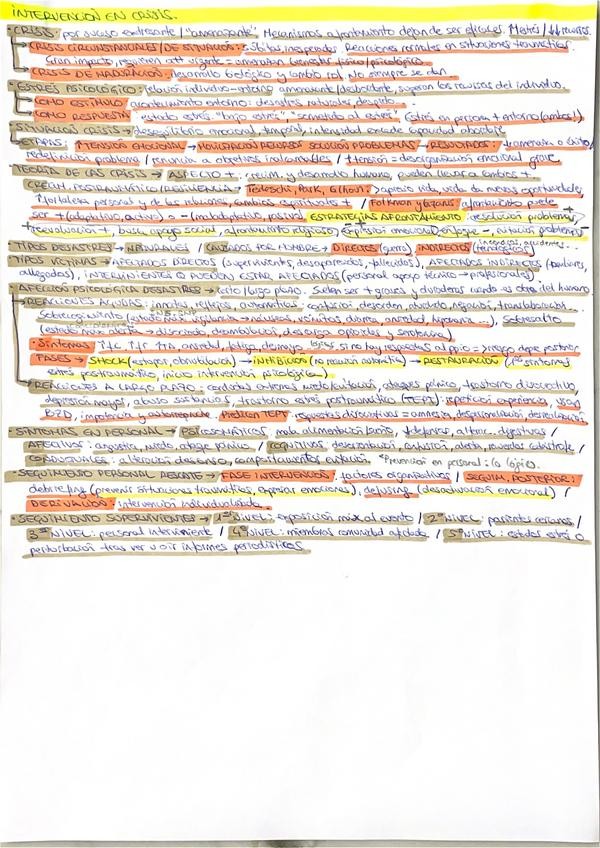 INTERVENCIÓN EN CRISIS.
· CRISIS: por suceso estresante / "amenazante". Mecanismos afrontamiento dejan de ser eficaces. / ↓↓ recursos.
→ CRISIS CIRCUNSTANCIALES / DE SITUACIÓN: súbitas inesperadas. Reacciones normales en situaciones traumáticas.
Gran impacto, requieren att urgente = amenazan bienestar físico/psicológico.
→ CRISIS DE MADURACIÓN: desarrollo biológico y cambio rol. No siempre se dan.
· ESTRÉS PSICOLÓGICO: relación individuo-entorno amenazante/desbordante, superan los recursos del individuo.
→ COMO ESTÍMULO: acontecimiento externo: desastres naturales, despido...
→ COMO RESPUESTA: estado estrés "bajo estrés", "sometido al estrés" (estrés en persona + entorno (ambos))
· SITUACIÓN CRISIS → desequilibrio emocional, temporal, intensidad excede capacidad abordaje.
→ ETAPAS: ↑TENSIÓN EMOCIONAL → MOVILIZACIÓN RECURSOS SOLUCIÓN PROBLEMAS → RESULTADOS: ↓ amenaza o éxito/
redefinición problema / renuncia a objetivos inalcanzables / ↑tensión = desorganización emocional grave.
· TEORÍA DE LAS CRISIS → ASPECTO +: crecim. y desarrollo humano, pueden llevar a cambios +.
→ CRECIM. POSTRAUMÁTICO/RESILIENCIA → Tedeschi, Park, Calhoun: aprecio vida, vida da nuevas oportunidades,
↑fortaleza personal y de las relaciones, cambios espirituales + / Folkman y Lazarus: afrontamiento puede
ser + (adaptativo, activo) o - (inadaptativo, pasivo). ESTRATEGIAS AFRONTAMIENTO: resolución problemas,
reevaluación +, busq. apoyo social, afrontamiento religioso, expresión emocional, enfoque -, evitación problemas
· TIPOS DESASTRES → NATURALES / CAUSADOS POR HOMBRE → DIRECTOS (guerra) INDIRECTOS (incendios, accidentes... tecnológicos)
· TIPOS VÍCTIMAS → AFECTADOS DIRECTOS (supervivientes, desaparecidos, fallecidos), AFECTADOS INDIRECTOS (familiares,
allegados), INTERVINIENTES O PUEDEN ESTAR AFECTADOS (personal apoyo técnico → profesionales)
· AFECCIÓN PSICOLÓGICA DESASTRES → corto/largo plazo. Suelen ser + graves y duraderas cuando es obra del humano
→ REACCIONES AGUDAS: innatas, reflejas, automáticas - confusión, desorden, nivelado, negación,
Sobrecogimiento (estado vigilancia → náuseas, vómitos, diarrea, ansiedad, ...), sobresalto
(estado max alerta → disociado, deambulación, descarga opioides y serotonina)
· Síntomas: ↑FC ↑FR ↑TA, ansiedad, fatiga, desmayo; si no hay respuestas al ppio → riesgo depr. posterior
FASES → SHOCK (estupor, obnubilación) → INHIBICIÓN (no reacción automática) → RESTAURACIÓN (1os síntomas
estrés postraumático, inicio intervención psicológica)
→ REACCIONES A LARGO PLAZO: conductas extremas miedo/evitación, ataques pánico, trastorno disociativo,
depresión mayor, abuso sustancias, trastorno estrés postraumático (TEPT): repetición experiencia, uso
BZD, impotencia y. Predicen TEPT: respuestas disociativas = amnesia, despersonalización, desrealización
· SÍNTOMAS EN PERSONAL → PSICOSOMÁTICOS: mala alimentación/sueño, ↓defensas, altrac. digestivas /
AFECTIVOS: angustia, miedo, ataque pánico / COGNITIVOS: desorientación, confusión, alerta, recuerdos catástrofe /
CONDUCTUALES: alteración descanso, comportamientos evitación. *Prevención en personal: (lo lógico).
· SEGUIMIENTO PERSONAL RESCATE → FASE INTERVENCIÓN: factores organizativos / SEGUIM. POSTERIOR:
debriefing (prevenir situaciones traumáticas, expresar emociones), defusing (desactivación emocional) /
DERIVACIÓN: intervención individualizada.
· SEGUIMIENTO SUPERVIVIENTES → 1er NIVEL: exposición máx al evento / 2º NIVEL: parientes cercanos /
3er NIVEL: personal interviniente / 4º NIVEL: miembros comunidad afectada / 5º NIVEL: estados estrés o
perturbación tras ver u oír informes periodísticos.